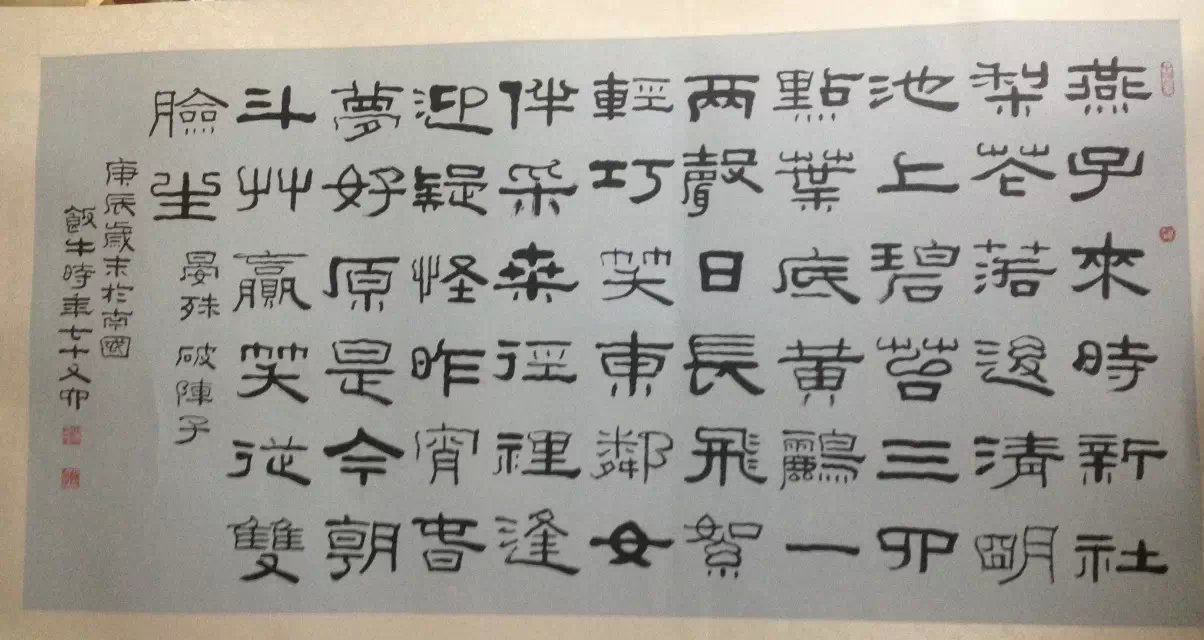 燕子來時新社
梨花落後清明
池上碧苔三四
點葉底黃鸝一
两聲日長飛絮
輕巧笑東鄰女
伴采桒徑裡逢
迎疑怪昨宵春
夢好原是今朝
斗艸贏笑從雙
臉生 晏殊 破陣子
庚辰歲末於南國
飯牛時年七十又四